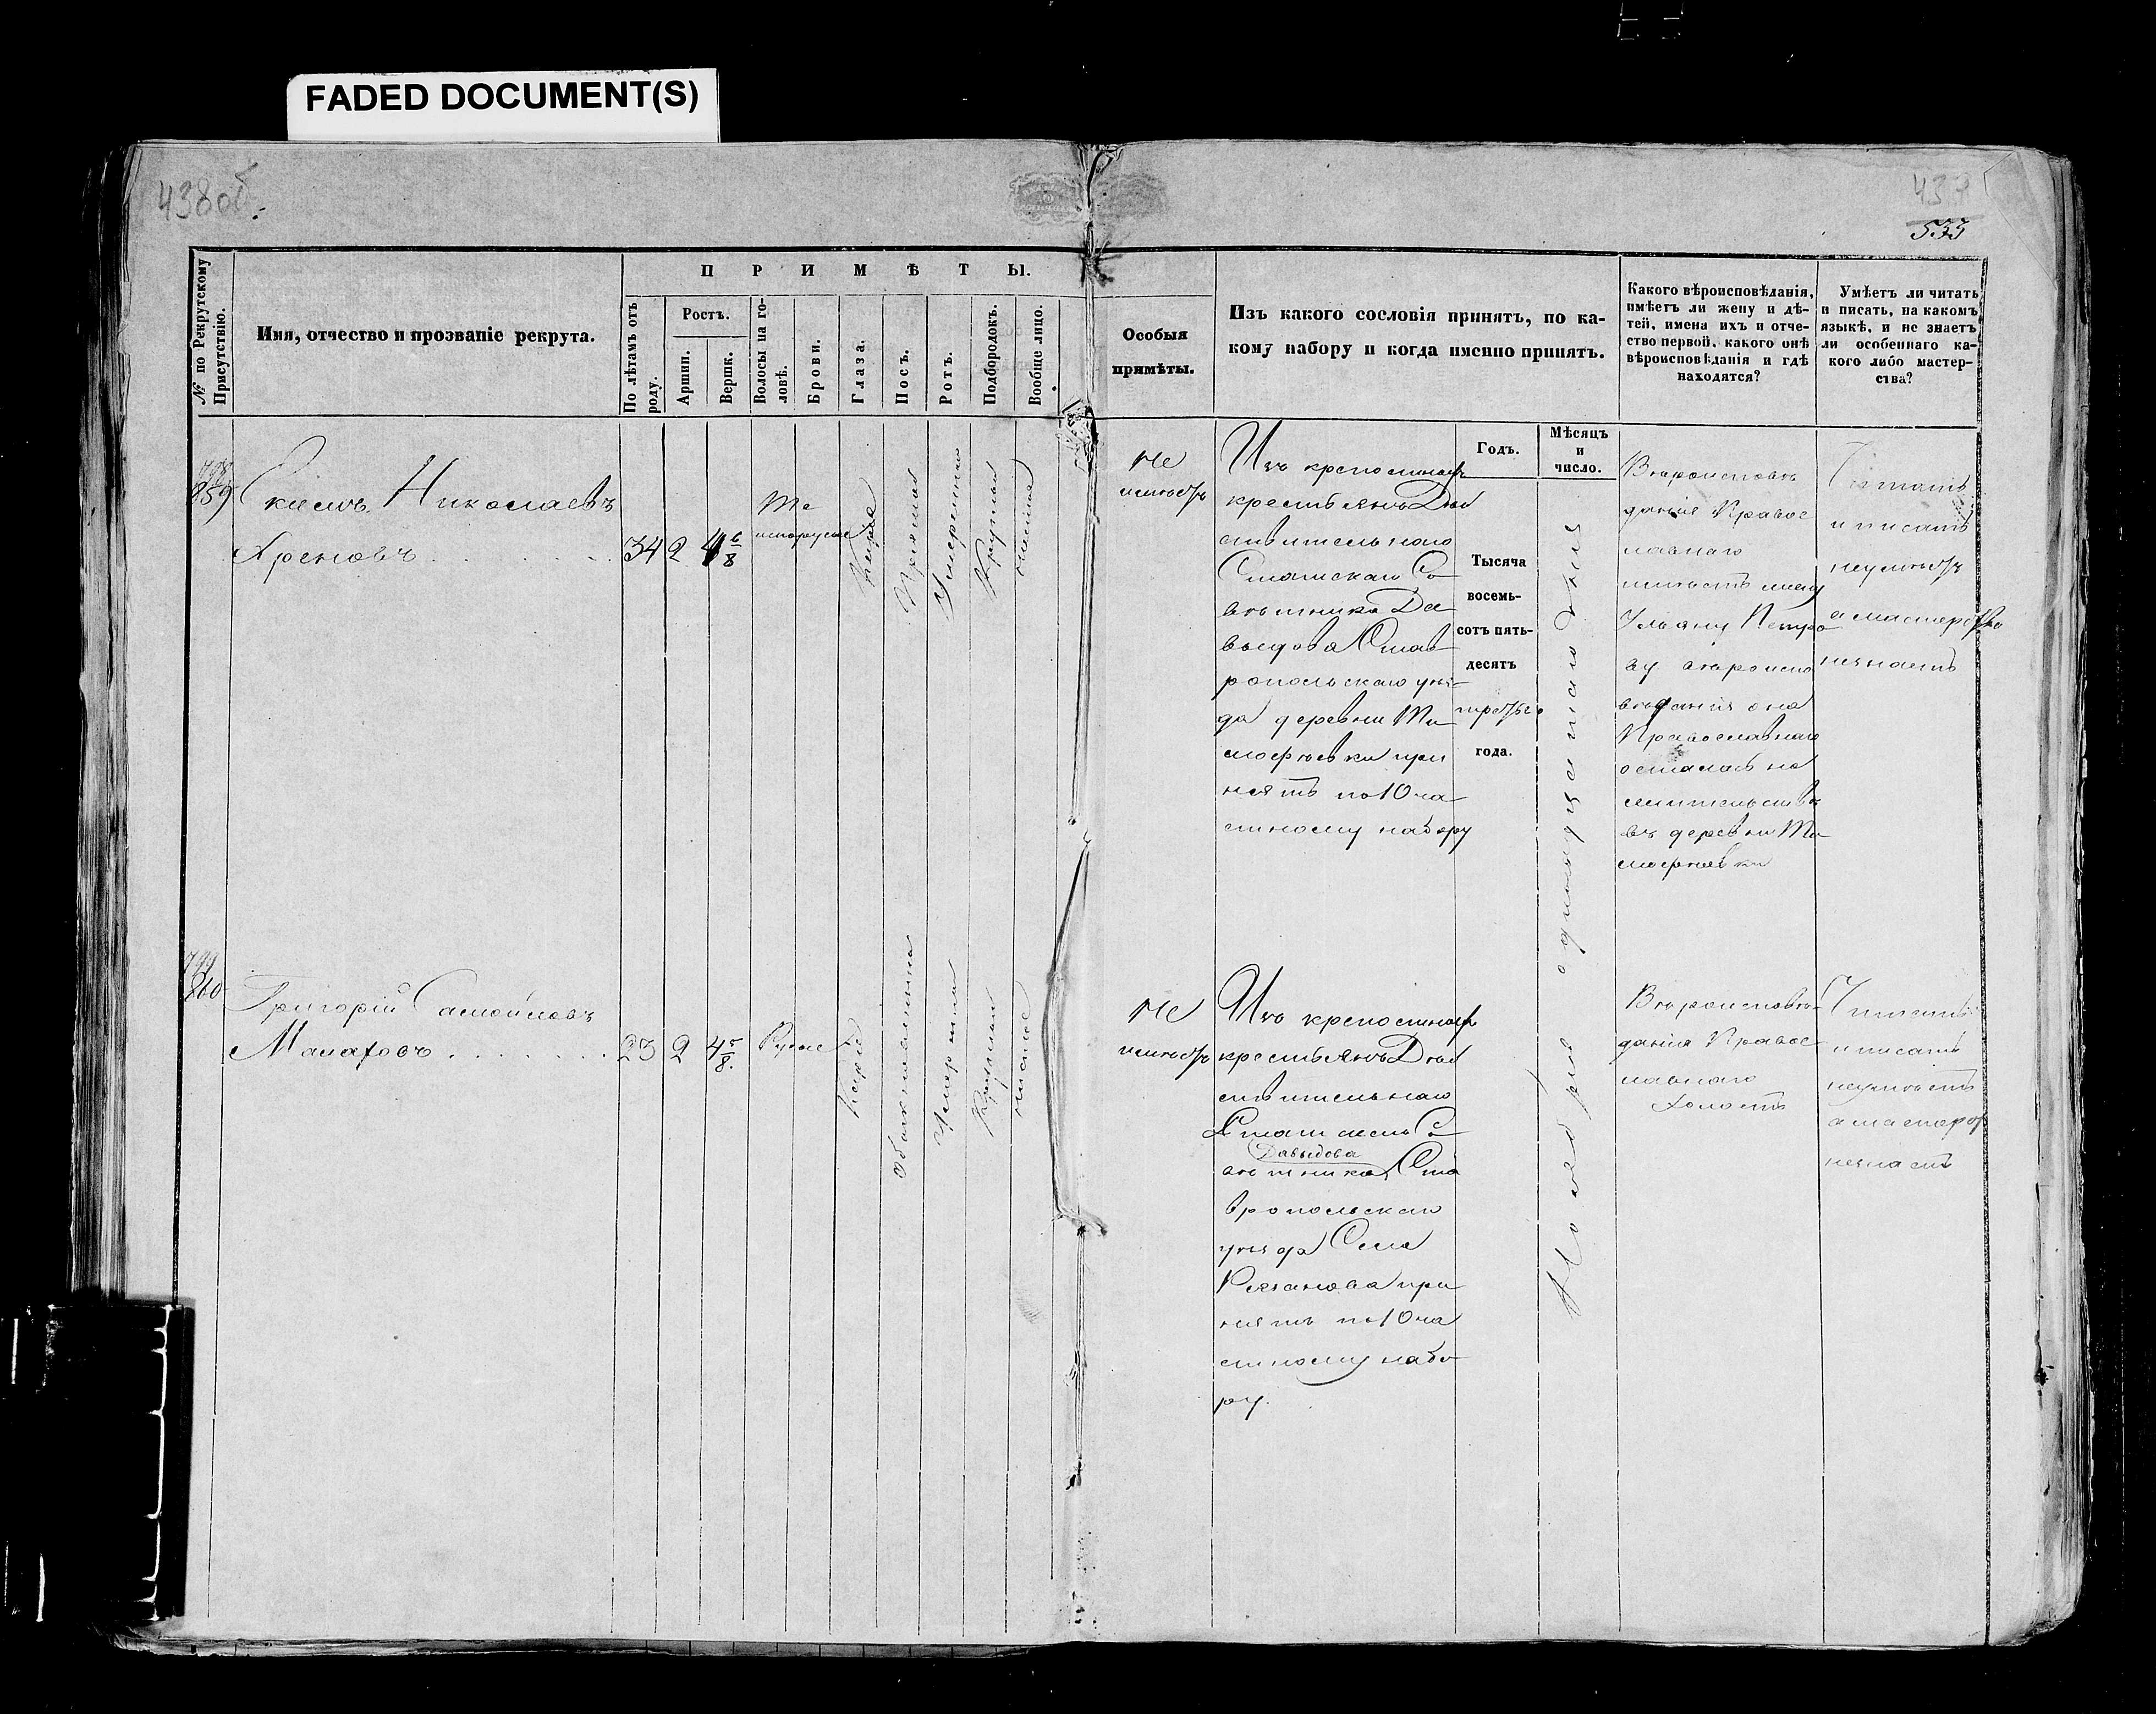 FADED DOCUMENT(S)
438об.
437
533
№ по Рекрутскому
Присутствію.
Имя, отчество и прозваніе рекрута.
П Р И М Ѣ Т Ы.
По лѣтамъ отъ
роду.
Ростъ.
Аршин.
Вершк.
Волосы на го-
ловѣ.
Брови.
Глаза.
Носъ.
Ротъ.
Подбородокъ.
Вообще лицо.
Особыя
примѣты.
Изъ какого сословія принятъ, по ка-
кому набору и когда именно принятъ.
Какого вѣроисповѣданія,
имѣетъ ли жену и дѣ-
тей, имена ихъ и отче-
ство первой, какого онѣ
вѣроисповѣданія и гдѣ
находятся?
Умѣетъ ли читать
и писать, на какомъ
языкѣ, и не знаетъ
ли особеннаго ка-
кого либо мастер-
ства?
Годъ.
Мѣсяцъ
и
число.
798
859
Николаевъ
Хреновъ
34
2
4 6/8
Те
мнорусые
Каріе
Прямой
Умеренной
Круглый
чистое
Не
имѣетъ
Изъ крепостныхъ
крестьянъ Дѣй
ствительнаго
Статскаго Со
вѣтника Да
выдова Став
ропольскаго уѣз
да деревни Ти
мофѣевки при
нятъ по 10 ча
стному набору
Тысяча
восемь-
сотъ пять-
десятъ
третьяго
года.
Ноября одинцатаго дня
Вѣроисповѣ
данія Правос
лавнаго
имѣетъ жену
Ульяну Петро
ву вѣроиспо
вѣданія она
Православнаго
осталась на
жительствѣ
въ деревни Ти
мофѣевки
Читать
и писать
неумѣетъ
а мастерства
незнаетъ
799
860
Григорій Самойловъ
Малаховъ
23
2
4 5/8.
Русые
Каріе
Обыкновенный
Умеренный
Круглый
чистое
Не
имѣетъ
Изъ крепостныхъ
крестьянъ Дѣй
ствительнаго
Статскаго Со
Давыдова
вѣтника Ста
вропольскаго
уѣзда Села
Резанова при
нятъ по 10 ча
стному набо
ру.
Вѣроисповѣ
данія Правос
лавнаго
Холостъ
Читать
и писать
неумѣетъ
а мастерст
незнаетъ